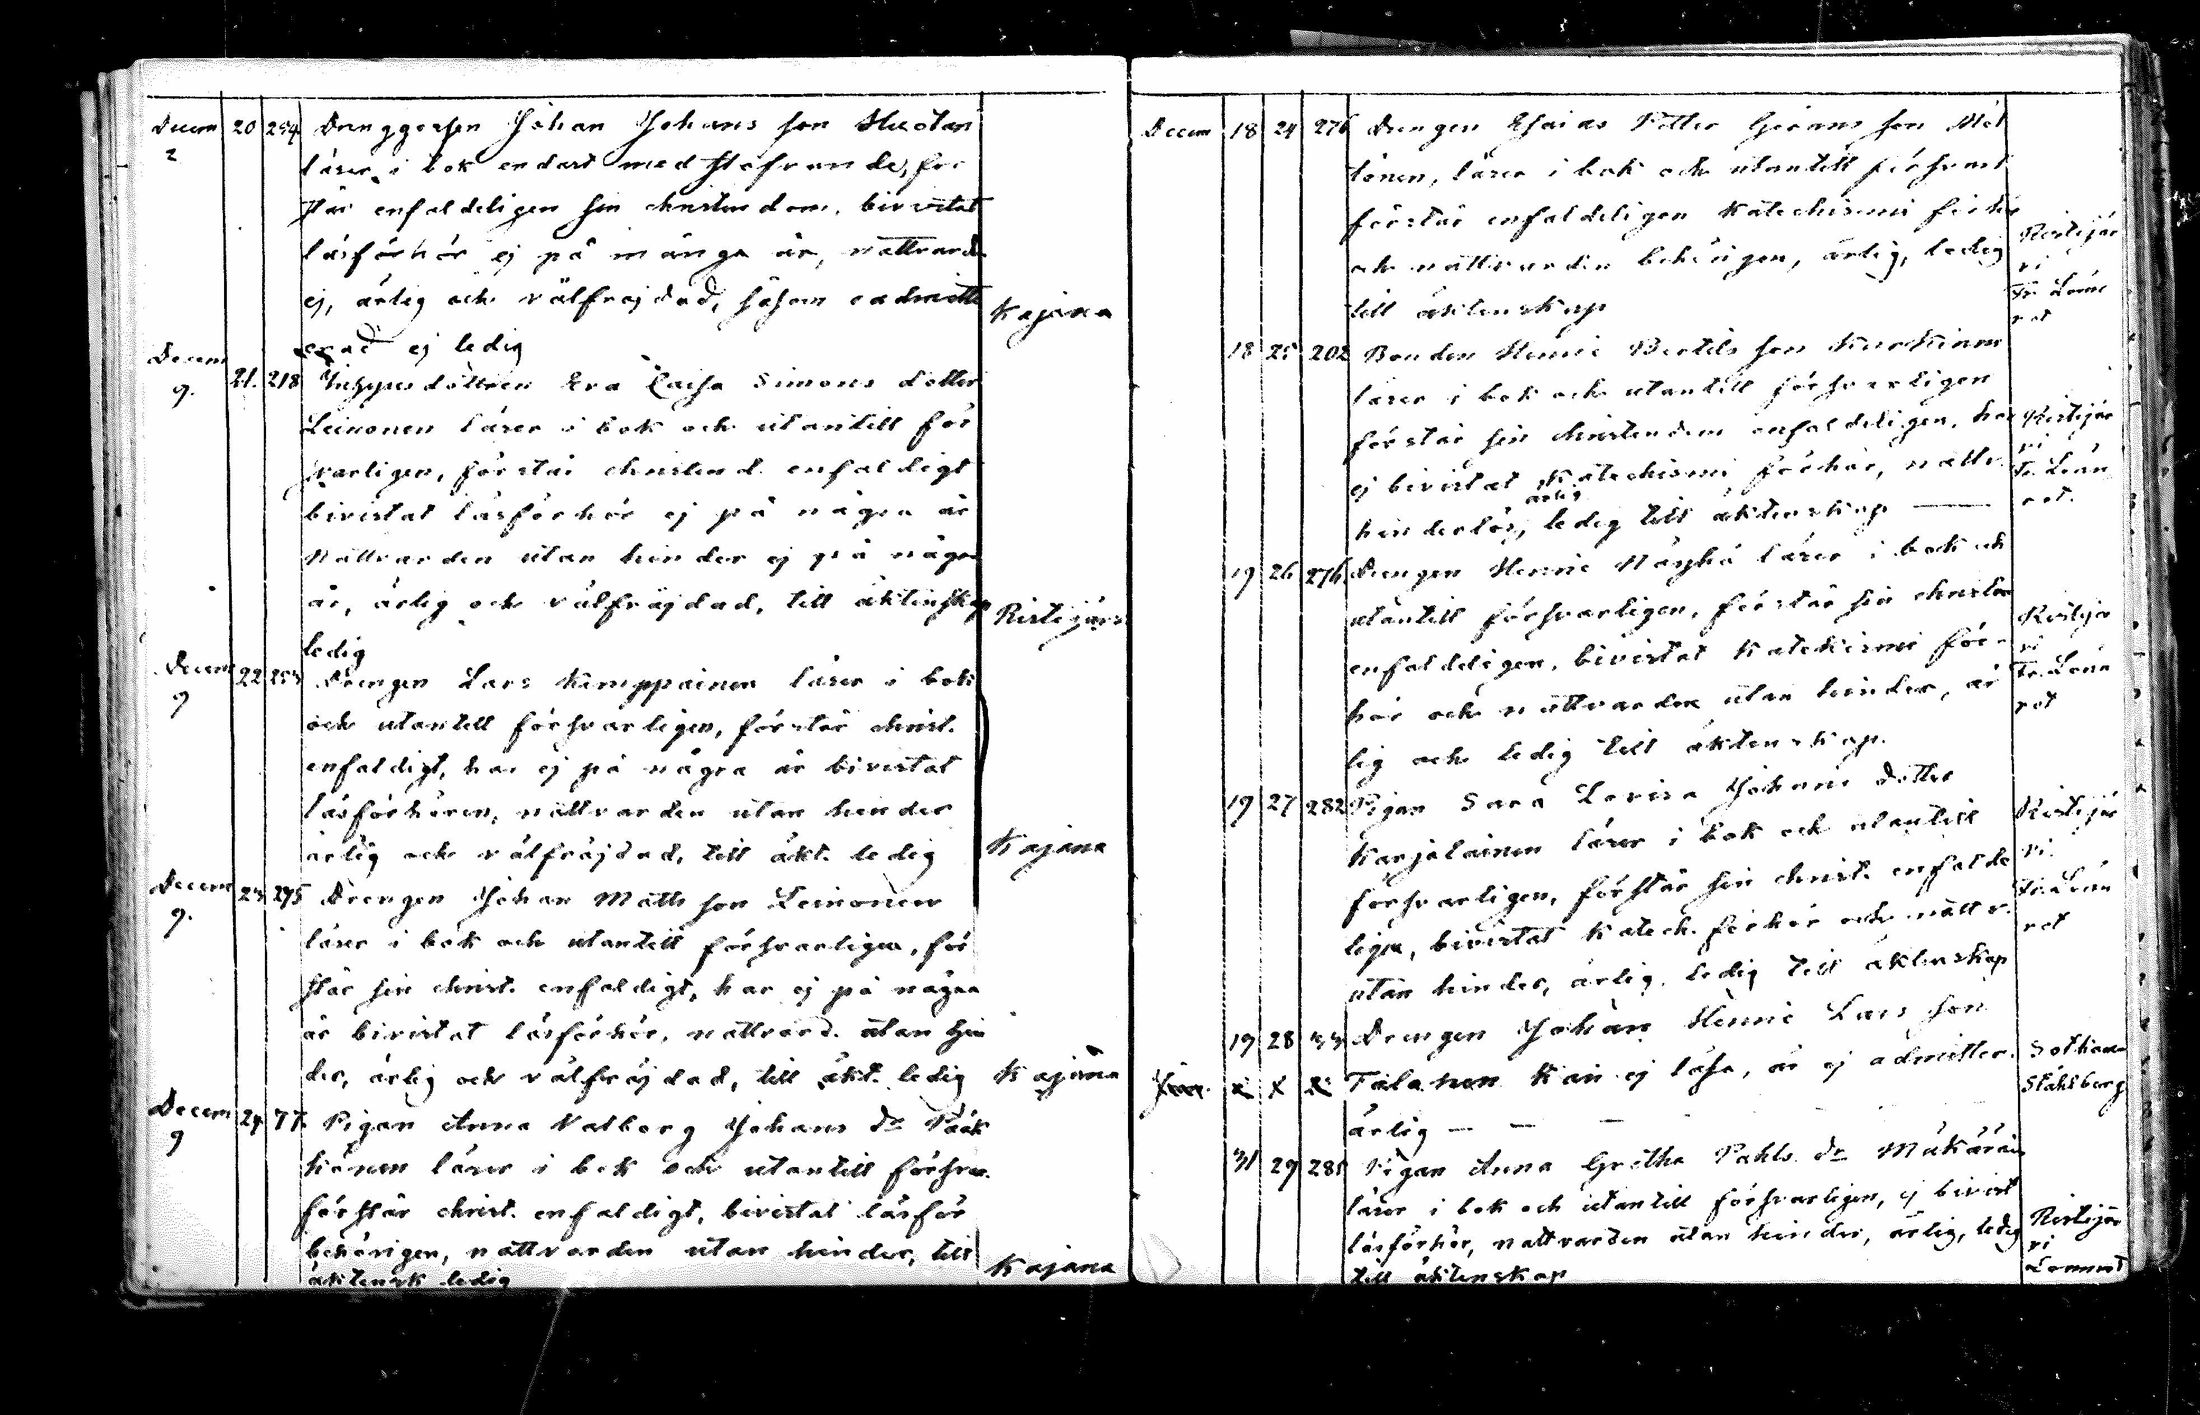 Decem 20 254 Drenggossen Johan Johans son Huotari
2
läser i bok endast med stafvande, för
står enfaldeligen sin christendom, bivistat
läsförhör ej på många år, nattvard
ej, ärlig och välfrejdad, såsom oadmitte
rad ej ledig
Kajana
Decem 21. 218 Inhyses dottren Eva Caisa Simons dotter
9.
Leinonen läser i bok och utantill för
svarligen, förstår christend. enfaldigt
bivistat läsförhör ej på några år
Nattvarden utan hinder ej på några
år, ärlig och välfräjdad, till äktenskap
ledig
Ristijärv
Decem 22 253 Drengen Lars Kemppainen läser i bok
9
och utantill försvarligen, förstår christ.
enfaldigt, har ej på några år bivistat
läsförhören, nattvarden utan hinder
ärlig och välfräjdad, till äkt. ledig
Kajana
Decem 23 295 Drengen Johan Matts son Leinonen
9.
läser i bok och utantill försvarligen, för
står sin christ. enfaldigt, har ej på några
år bivistat läsförhör, nattvard. utan hin
der, ärlig och välfräjdad, till äkt. ledig
Kajana
Decem 24 77. Pigan Anna Valborg Johans dr Pääk
9
könen läser i bok och utantill försva.
förstår christ. enfaldigt, bivistat läsför
behörigen, nattvarden utan hinder, till
äktensk ledig
Kajana
Decem 18 24 276 Drengen Esaias Petter Görans son Möt
tönen, läser i bok och utantill försvarl
förstår enfaldeligen Katechismi förhör
och nattvarden behörigen, ärlig, ledig
till äktenskap
Ristijär
vi
Fr. Lönn
rot
18 25 202 Bonden Henric Bertils son Kurkinen
läser i bok och utantill försvarligen
förstår sin christendom enfaldeligen, har
ej bivistat Katechismi förhör, nattv.
ärlig
hinderlös, ledig till äktenskap
Ristijär
vi
Fr. Lönn
rot.
19 26 276 Drengen Henric Näyhä läser i bok och
utantill försvarligen, förstår sin christen
enfaldeligen, bivistat Katekismi för-
hör och nattvarden utan hinder, är
lig och ledig till äktenskap.
Ristijär
vi
Fr. Lönn
rot
19 27 282 Pigan Sara Lovisa Johans dotter
Karjalainen läser i bok och utantill
försvarligen, förstår sin christ. enfalde
ligen, bivistat Katech. förhör och nattv.
utan hinder, ärlig, ledig till äktenskap
Ristijär
vi
Fr. Lönn
rot
19 28 33 Drengen Johan Henric Lars son
Talanen kan ej läsa, är ej admitter.
ärlig — — —
Sotkamo
Ståhlberg
31 29 285 Pigan Anna Gretha Pahls dr Mukärain
läser i bok och utantill försvarligen, ej bivist
läsförhör, nattvarden utan hinder, ärlig, ledig
till äktenskap
Ristijär
vi